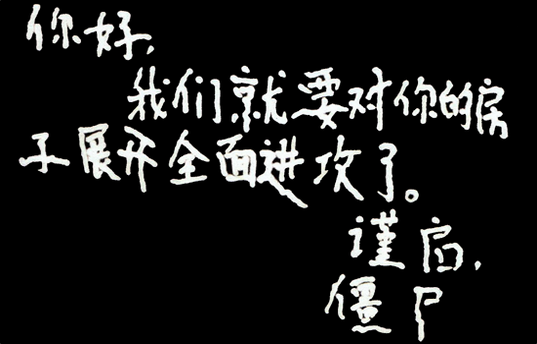 你好,
我们就要对你的房
子展开全面进攻了。
谨启,
僵尸